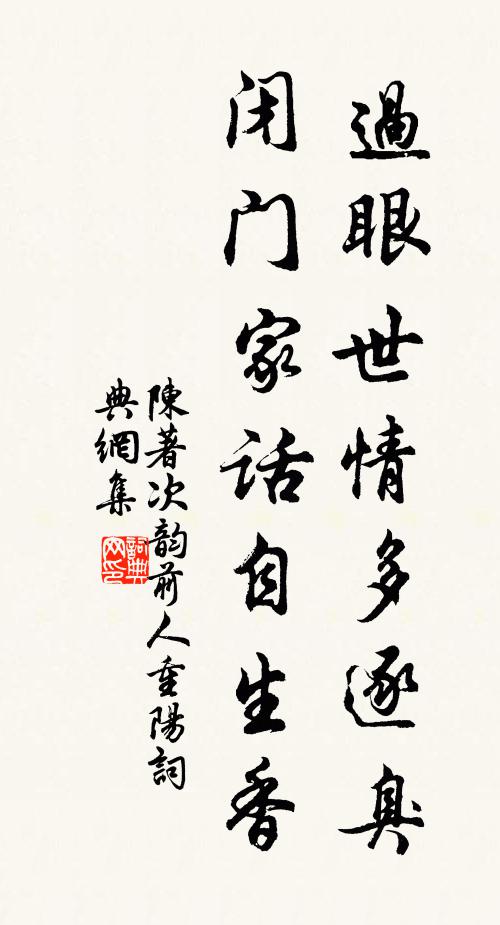 過眼世情多逐臭
闭门家话自生香
陳著次韵前人重陽詞
典網集
詞典网印